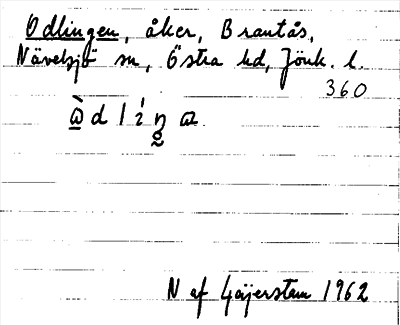 Odlingen, åker, Brantås,
Nävelsjö sn, Östra hd, Jönk. l.
360
N af Geijerstam 1962